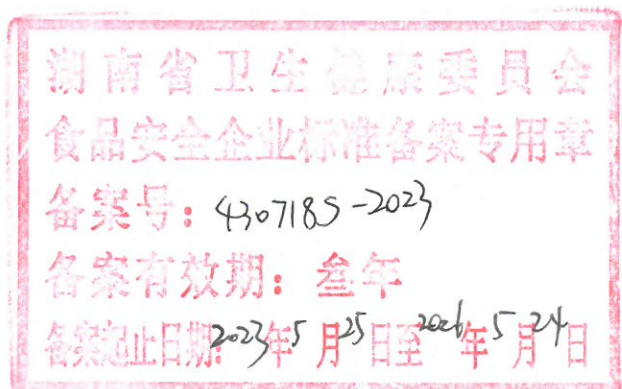 湖南省卫生健康委员会
食品安全企业标准备案专用章
备案号：430718S-2023
备案有效期：叁年
备案起止日期：2023年5月25日至2026年5月24日